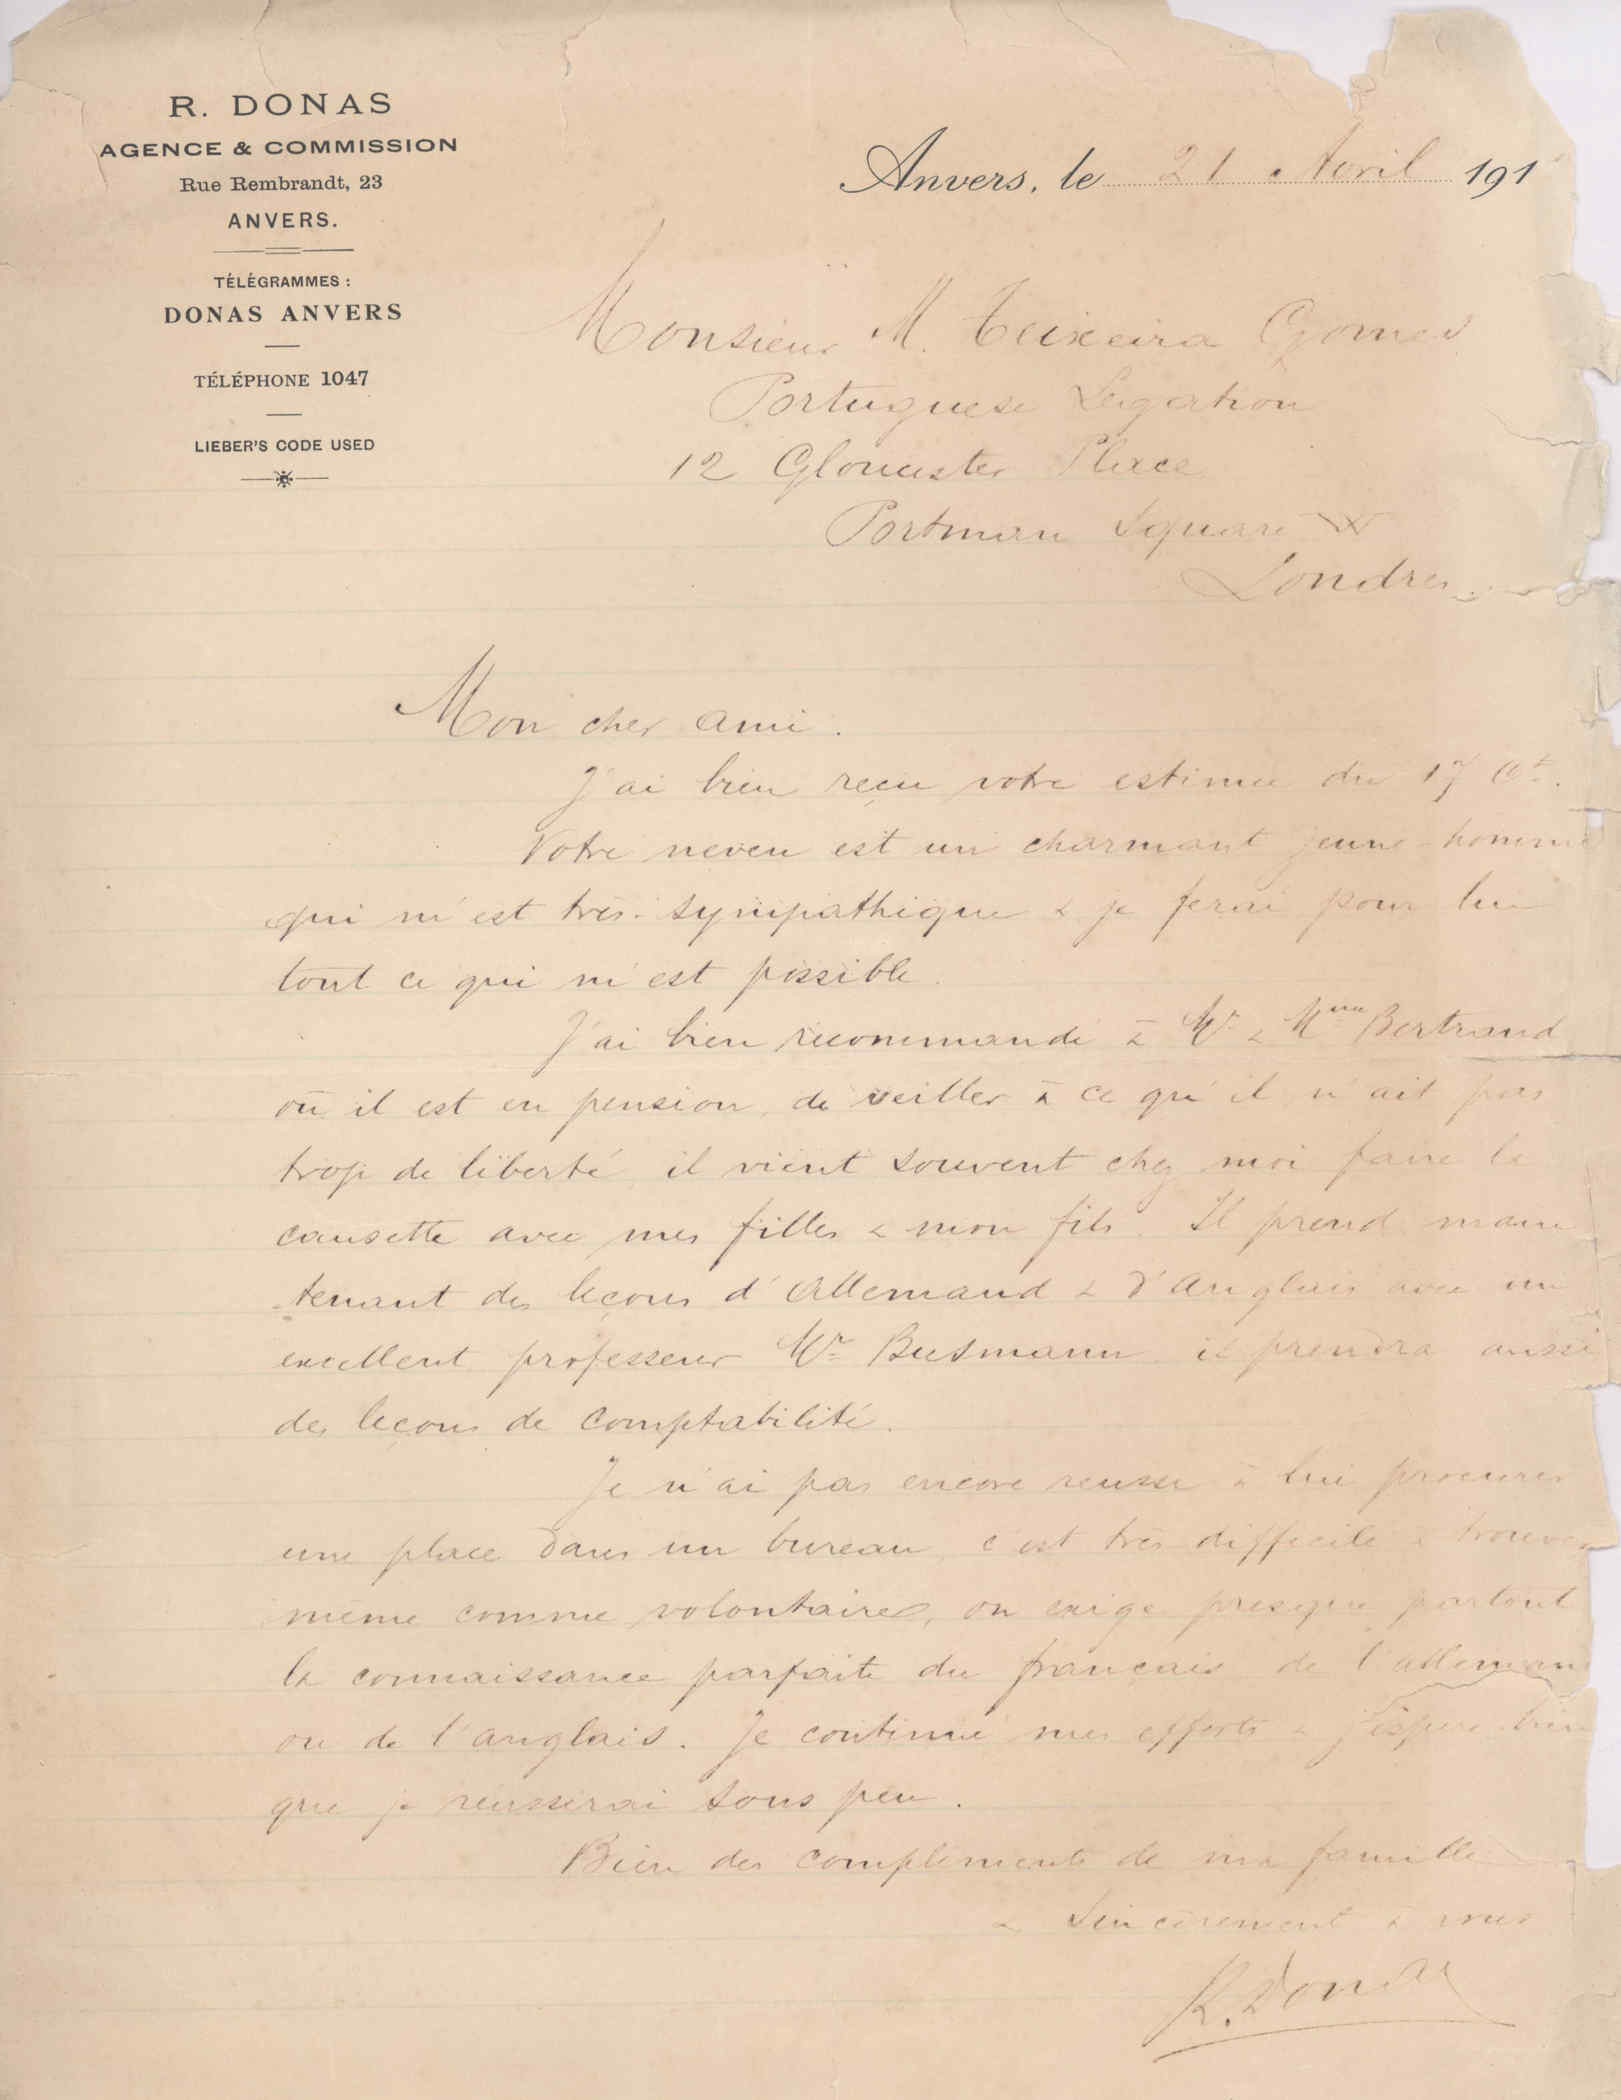 R. DONAS
AGENCE & COMMISSION
Rue Rembrandt, 23
ANVERS.
TÉLÉGRAMMES :
DONAS ANVERS
TÉLÉPHONE 1047
LIEBER'S CODE USED
Anvers, le 21 Avril 191
Monsieur M. Teixeira Gomes
Portuguese Legation
12 Gloucester Place
Portman Square W
Londres
Mon cher ami.
J'ai bien reçu votre estimée du 17 Ct.
Votre neveu est un charmant jeune-homme
qui m'est très-sympathique & je ferai pour lui
tout ce qui m'est possible.
J'ai bien recommandé à Mr & Mme Bertrand
où il est en pension, de veiller à ce qu'il n'ait pas
trop de liberté, il vient souvent chez moi faire la
causette avec mes filles & mon fils. Il prend main
tenant des leçons d'Allemand & d'Anglais avec un
excellent professeur Mr Busmann il prendra aussi
des leçons de comptabilité.
Je n'ai pas encore réussi à lui procurer
une place dans un bureau, c'est très difficile à trouver
même comme volontaire, on exige presque partout
la connaissance parfaite du français de l'alleman
ou de l'anglais. Je continue mes efforts & j'espère bien
que je réussirai sous peu.
Bien des compliments de ma famille
& sincèrement à vous
R. Donas